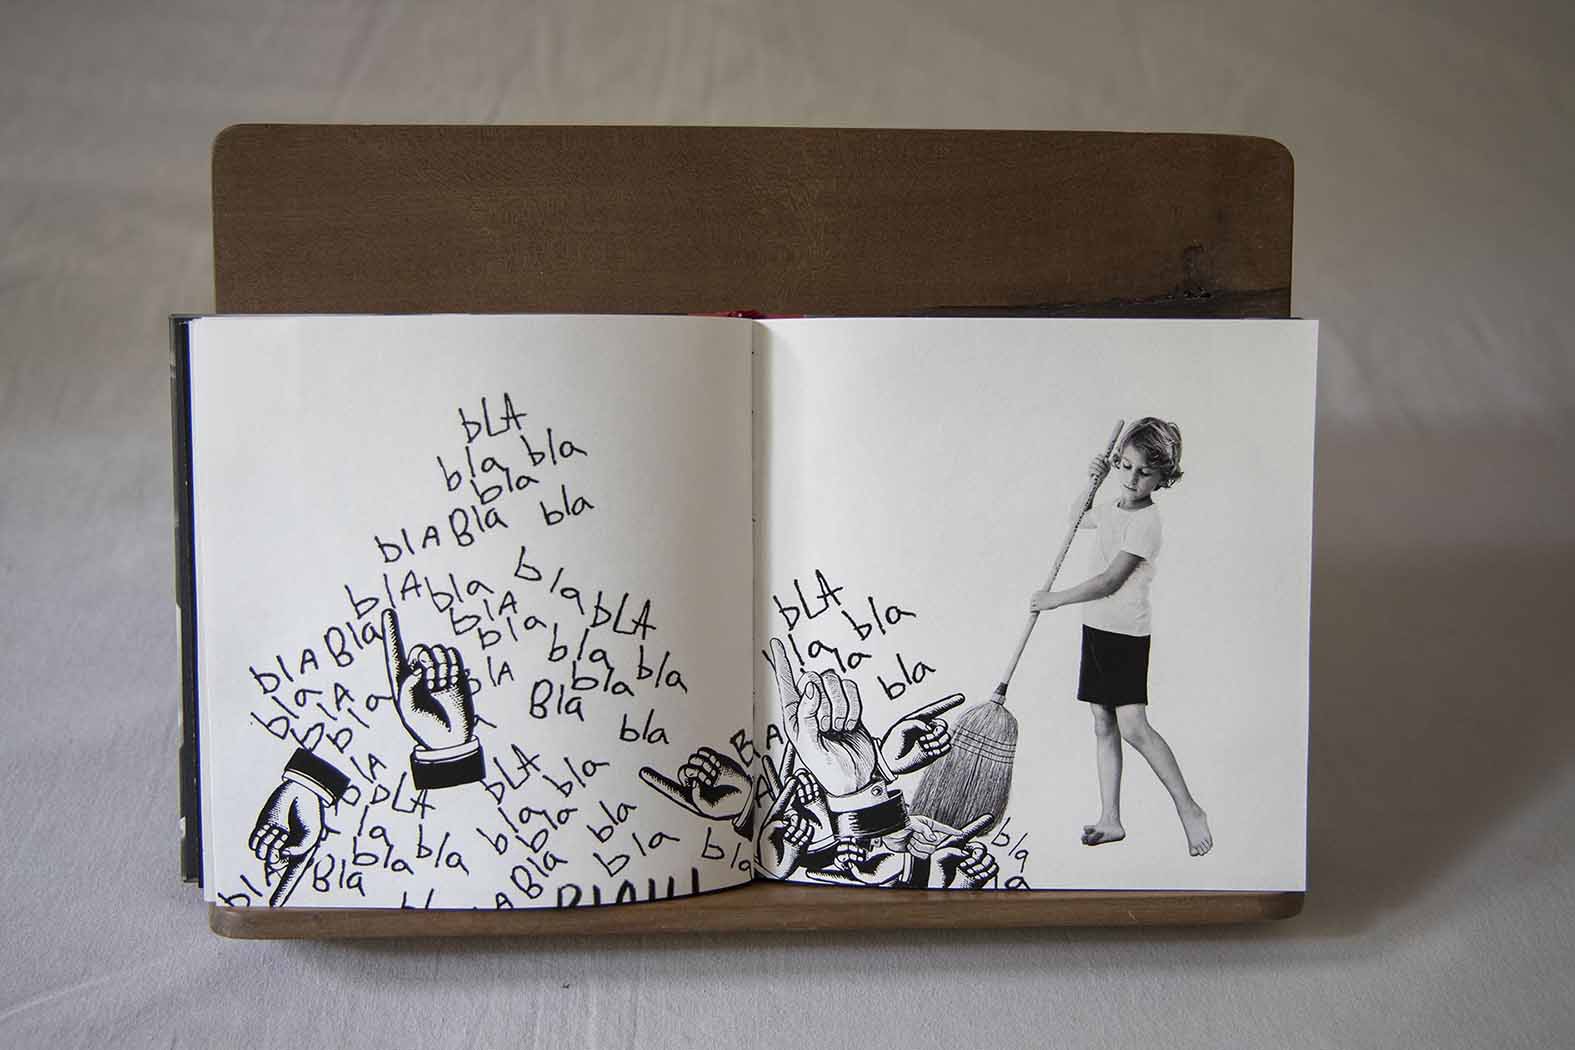 bLA
bla bla
bla
blA Bla bla
blA bla bla
blA bLA
blA Bla bla
bla bla
blA bla bla
bla blA Bla
bla
bla
blA bLA
bLA bla
bla bla bla bla
bla bla
Bla Bla bla
blA
BLAH
bLA
bla bla
bla
bla
BlA
bla
bla
bla